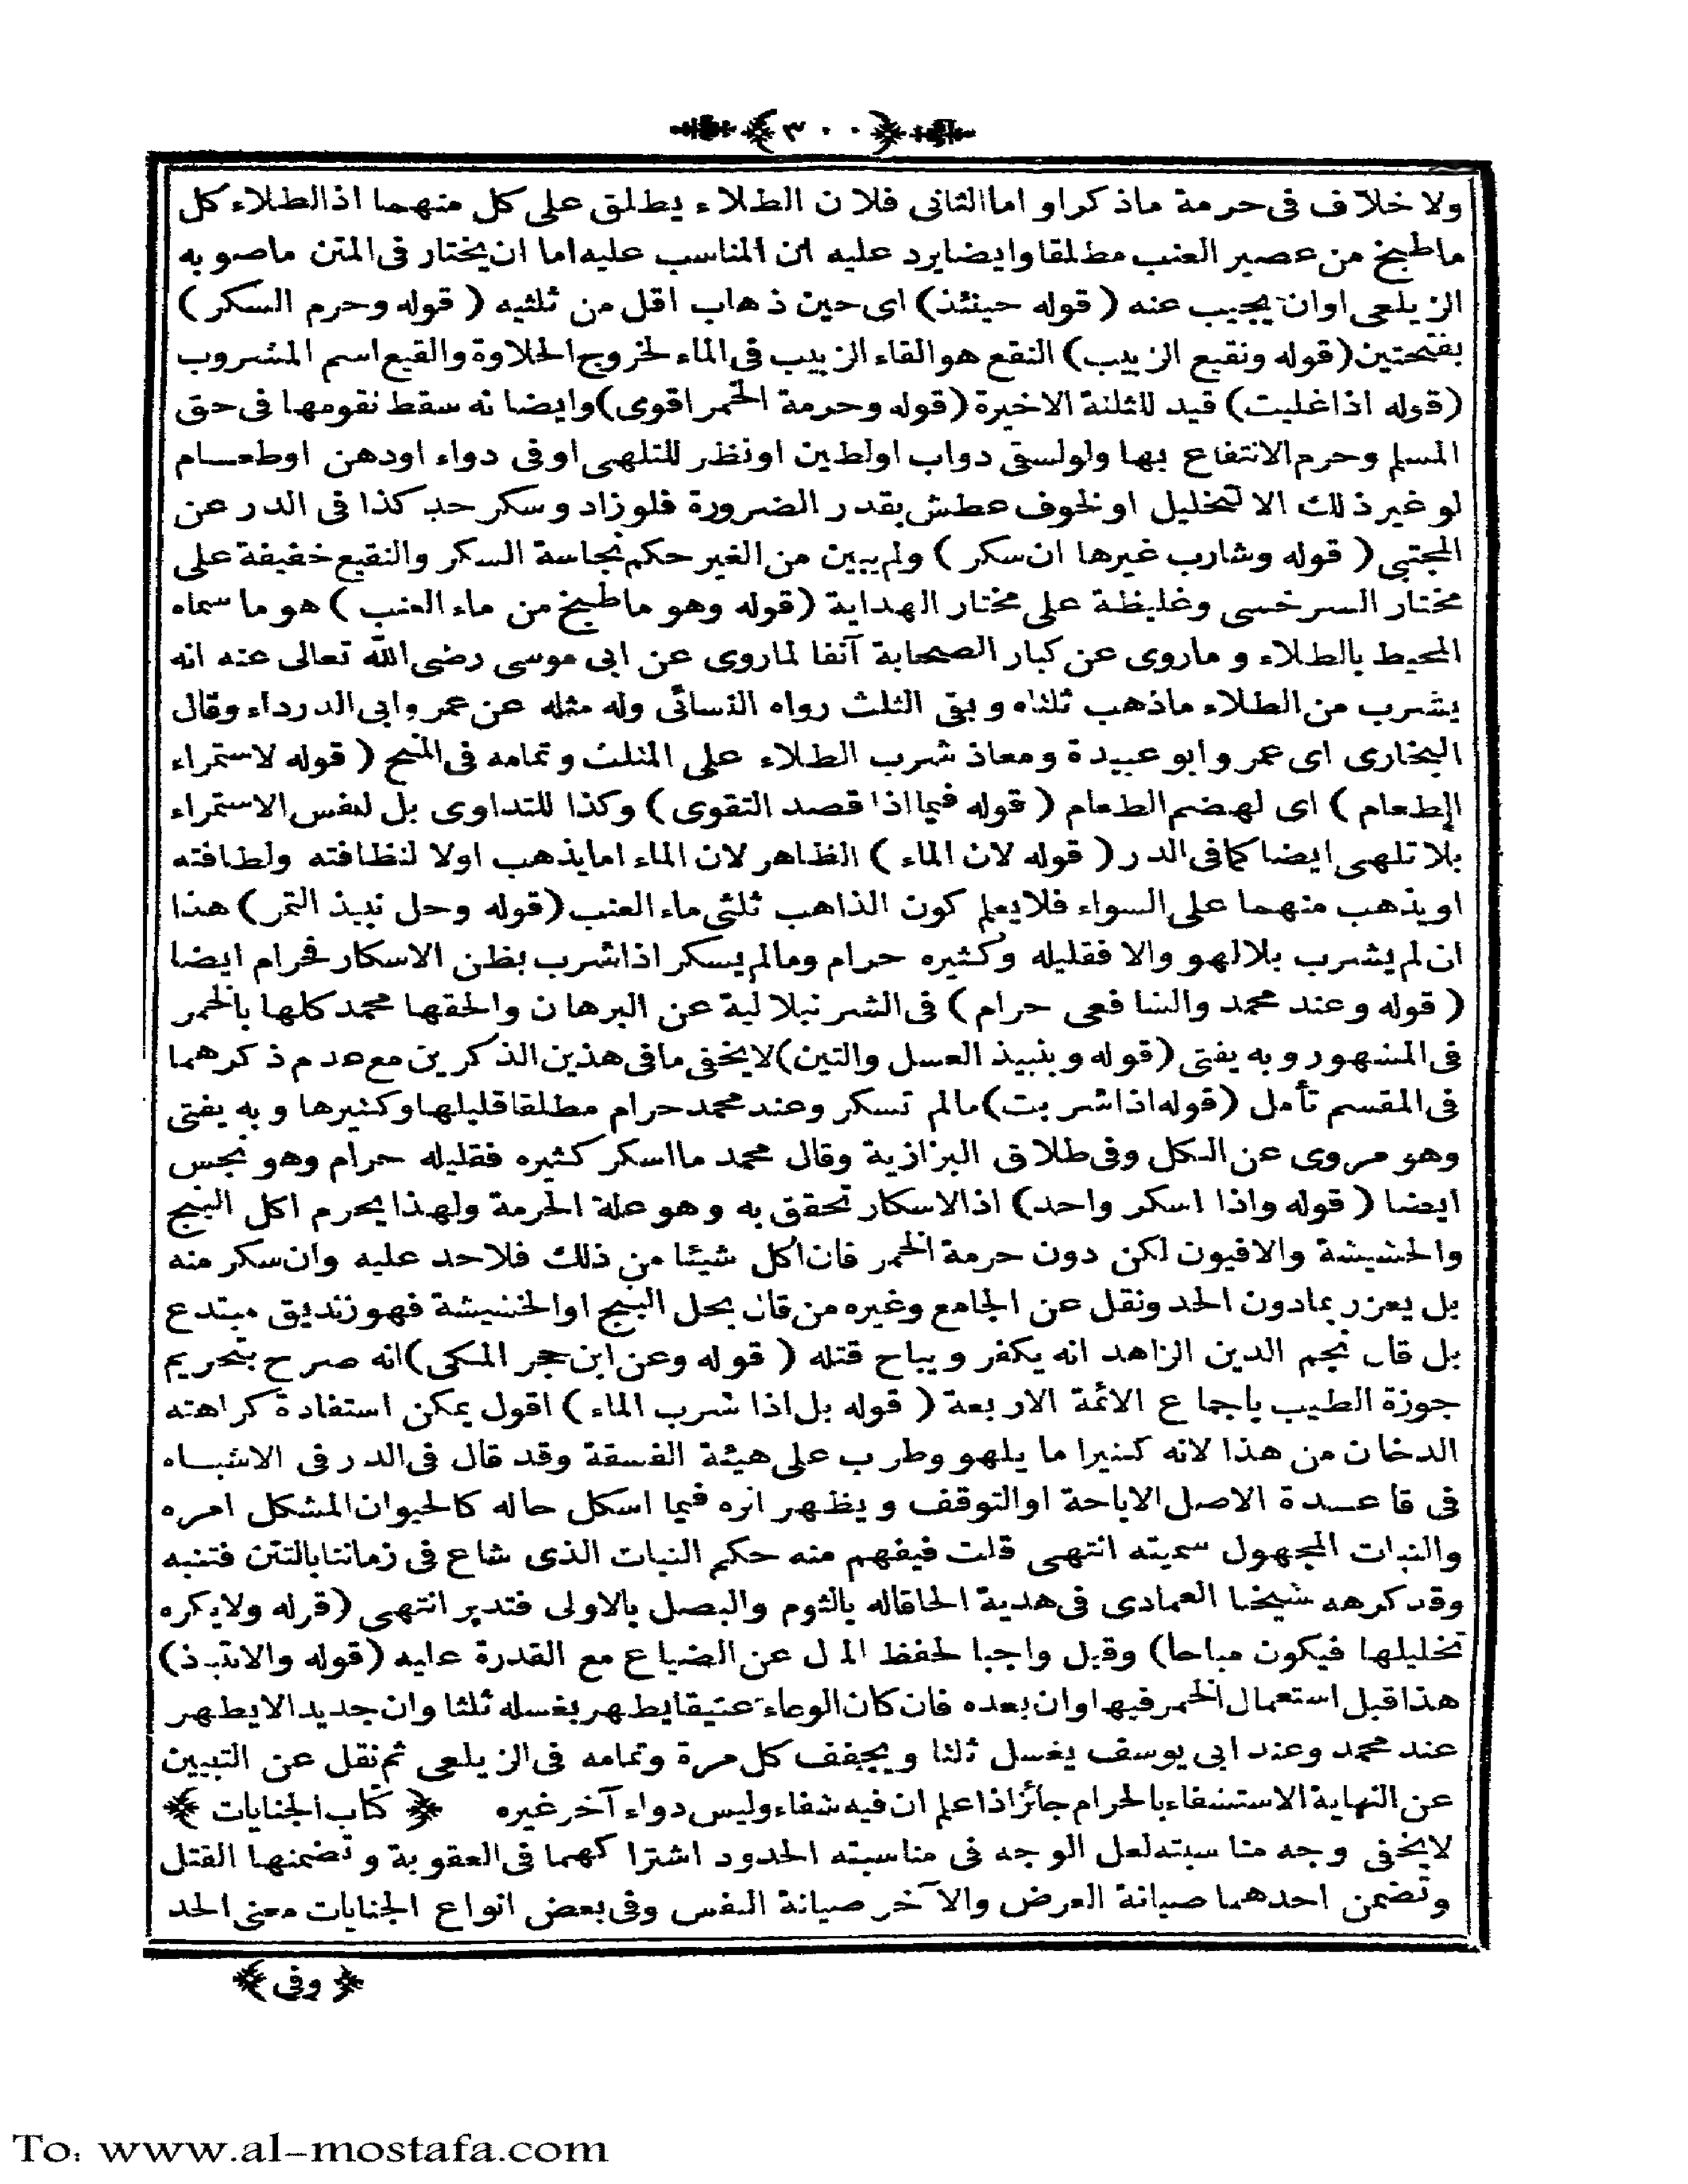 ﴿٣٠٠﴾
ولا خلاف فى حرمة ماذكراو اماالثانى فلان الطلاء يطلق على كل منهما اذالطلاء كل
ماطبخ من عصير العنب مطلقا وايضا يرد عليه ان المناسب عليه اما ان يختار فى المتن ماصوبه
الزيلعى اوان يجيب عنه ( قوله حينئذ) اى حين ذهاب اقل من ثلثيه ( قوله وحرم السكر )
بفتحتين (قوله ونقيع الزبيب) النقع هو القاء الزبيب فى الماء لخروج الحلاوة والقيع اسم المشروب
(قوله اذاغليت) قيد للثلثة الاخيرة (قوله وحرمة الخمراقوى) وايضا نه سقط نقومها فى حق
المسلم وحرم الانتفاع بها ولولسقى دواب اولطين اونظر للتلهى اوفى دواء اودهن اوطعام
لو غير ذلك الا لتخليل اولخوف عطش بقدر الضرورة فلوزاد وسكر حد كذا فى الدر عن
المجتبى ( قوله وشارب غيرها ان سكر ) ولم يبين من الغير حكم نجاسة السكر والنقيع خفيفة على
مختار السرخسى وغليظة على مختار الهداية (قوله وهو ماطبخ من ماء العنب ) هو ما سماه
المحيط بالطلاء و ماروى عن كبار الصحابة آنفا لماروى عن ابى موسى رضى الله تعالى عنه انه
يشرب من الطلاء ماذهب ثلثاه و بقى الثلث رواه النسائى وله مثله عن عمر وابى الدرداء وقال
البخارى اى عمر وابو عبيدة ومعاذ شرب الطلاء على المثلث وتمامه فى المنح ( قوله لاستمراء
الطعام ) اى لهضم الطعام ( قوله فيما اذا قصد التقوى ) وكذا للتداوى بل لنفس الاستمراء
بلا تلهى ايضا كمافى الدر ( قوله لان الماء ) الظاهر لان الماء امايذهب اولا لنظافته ولطافته
او يذهب منهما على السواء فلا يعلم كون الذاهب ثلثى ماء العنب (قوله وحل نبيذ التمر) هذا
ان لم يشرب بلالهو والا فقليله وكثيره حرام ومالم يسكر اذاشرب بظن الاسكار فحرام ايضا
( قوله وعند محمد والشافعى حرام ) فى الشرنبلالية عن البرهان والحقها محمد كلها بالخمر
فى المشهور و به يفتى (قوله و بنبيذ العسل والتين) لا يخفى مافى هذين الذكرين مع عدم ذكرهما
فى المقسم تأمل (قوله اذاشربت) مالم تسكر وعند محمد حرام مطلقا قليلها وكثيرها و به يفتى
وهو مروى عن الكل وفى طلاق البزازية وقال محمد مااسكر كثيره فقليله حرام وهو نجس
ايضا ( قوله واذا اسكر واحد) اذالاسكار تحقق به وهو علة الحرمة ولهذا يحرم اكل البنج
والحشيشة والافيون لكن دون حرمة الخمر فان اكل شيئا من ذلك فلاحد عليه وان سكر منه
بل يعزر بمادون الحد ونقل عن الجامع وغيره من قال بحل البنج اوالحشيشة فهو زنديق مبتدع
بل قال نجم الدين الزاهد انه يكفر ويباح قتله ( قوله وعن ابن حجر المكى) انه صرح بتحريم
جوزة الطيب باجماع الائمة الاربعة ( قوله بل اذا شرب الماء ) اقول يمكن استفادة كراهته
الدخان من هذا لانه كثيرا ما يلهو وطرب على هيئة الفسقة وقد قال فى الدر فى الاشباه
فى قاعدة الاصل الاباحة اوالتوقف ويظهر اثره فيما اسكل حاله كالحيوان المشكل امره
والنبات المجهول سميته انتهى قلت فيفهم منه حكم النبات الذى شاع فى زماننا بالتتن فتنبه
وقد كرهه شيخنا العمادى فى هدية الحاقاله بالثوم والبصل بالاولى فتدبر انتهى (قوله ولا يكره
تخليلها فيكون مباحا) وقيل واجبا لحفظ المال عن الضياع مع القدرة عليه (قوله والانتبذ)
هذا قبل استعمال الخمر فيها وان بعده فان كان الوعاء عتيقا يطهر بغسله ثلثا وان جديدا لا يطهر
عند محمد وعند ابى يوسف يغسل ثلثا ويجفف كل مرة وتمامه فى الزيلعى ثم نقل عن التبيين
عن النهاية الاستشفاء بالحرام جائز اذا علم ان فيه شفاء وليس دواء آخر غيره ﴿ كتاب الجنايات ﴾
لا يخفى وجه مناسبته لعل الوجه فى مناسبته الحدود اشتراكهما فى العقوبة وتضمنها القتل
وتضمن احدهما صيانة العرض والآخر صيانة النفس وفى بعض انواع الجنايات معنى الحد
﴿ وفى ﴾
To: www.al-mostafa.com